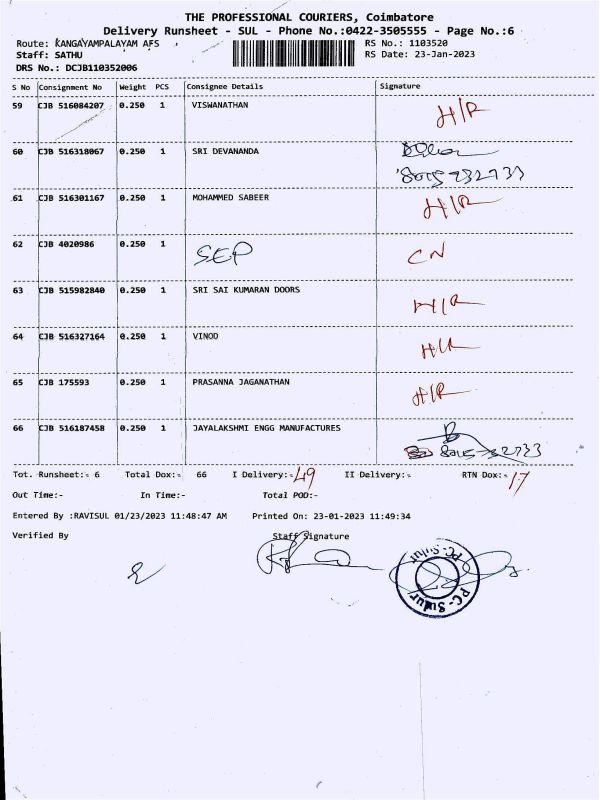 THE PROFESSIONAL COURIERS, Coimbatore
Delivery Runsheet - SUL - Phone No.:0422-3505555 - Page No.:6
Route: KANGAYAMPALAYAM AFS RS No.: 1103520
Staff: SATHU RS Date: 23-Jan-2023
DRS No.: DCJB110352006
S No Consignment No Weight PCS Consignee Details Signature
59 CJB 516084207 0.250 1 VISWANATHAN H/R
60 CJB 516318067 0.250 1 SRI DEVANANDA
8015732733
61 CJB 516301167 0.250 1 MOHAMMED SABEER H/R
62 CJB 4020986 0.250 1 SEP CN
63 CJB 515982840 0.250 1 SRI SAI KUMARAN DOORS H/R
64 CJB 516327164 0.250 1 VINOD H/R
65 CJB 175593 0.250 1 PRASANNA JAGANATHAN H/R
66 CJB 516187458 0.250 1 JAYALAKSHMI ENGG MANUFACTURES
8015732733
Tot. Runsheet:- 6 Total Dox:- 66 I Delivery:- 49 II Delivery:- RTN Dox:- 17
Out Time:- In Time:- Total POD:-
Entered By :RAVISUL 01/23/2023 11:48:47 AM Printed On: 23-01-2023 11:49:34
Verified By Staff Signature
PC-Sulur
PC-Sulur